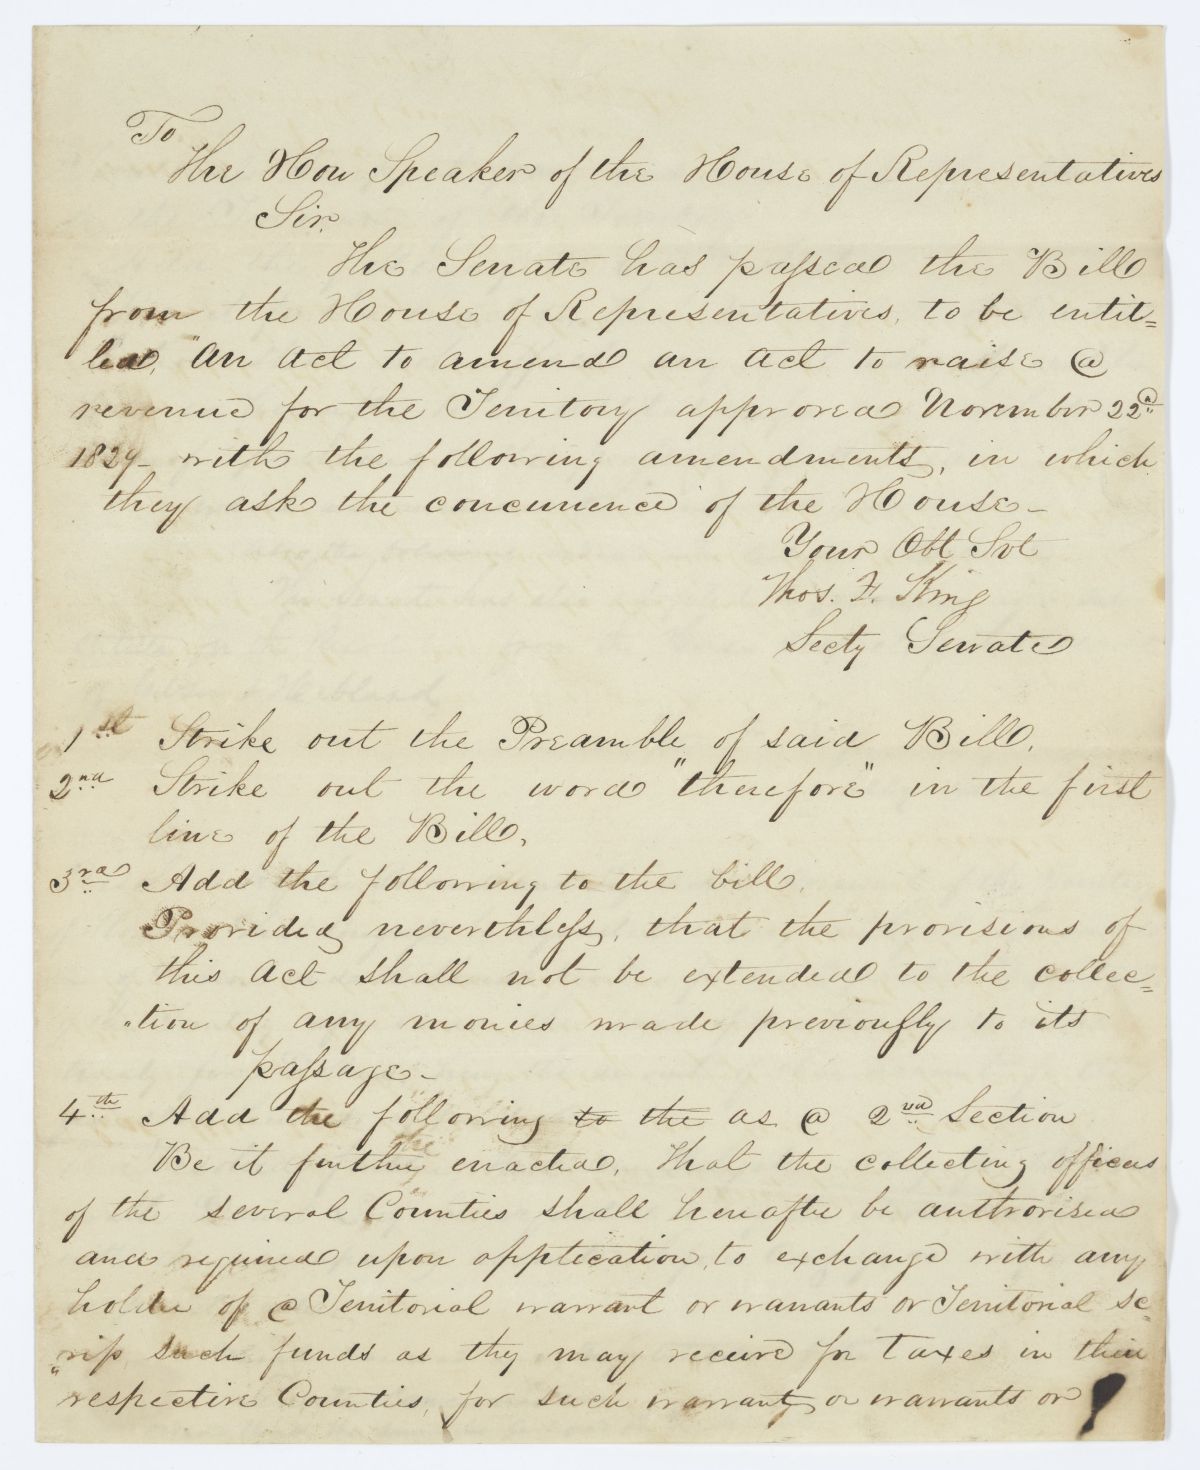 To
The Hon Speaker of the House of Representatives
Sir.
The Senate has passed the Bill
from the House of Representatives, to be entit=
led, "An Act to amend an Act to raise a
revenue for the Territory approved November 22d
1829- with the following amendments, in which
they ask the concurrence of the House-
Your Obt Svt
Thos. F. King
Secty Senate
1st Strike out the Preamble of said Bill.
2nd Strike out the word "therefore" in the first
line of the Bill.
3rd Add the following to the bill.
Provided nevertheless, that the provisions of
this Act shall not be extended to the collec=
"tion of any monies made previously to its
passage-
4th Add the following to the as a 2nd Section
Be it further enacted, That the collecting officers
of the several Counties shall hereafter be authorised
and required upon application, to exchange with any
holder of a Territorial warrant or warrants or Territorial sc=
"rip such funds as they may receive for Taxes in their
respective Counties, for such warrant, or warrants or